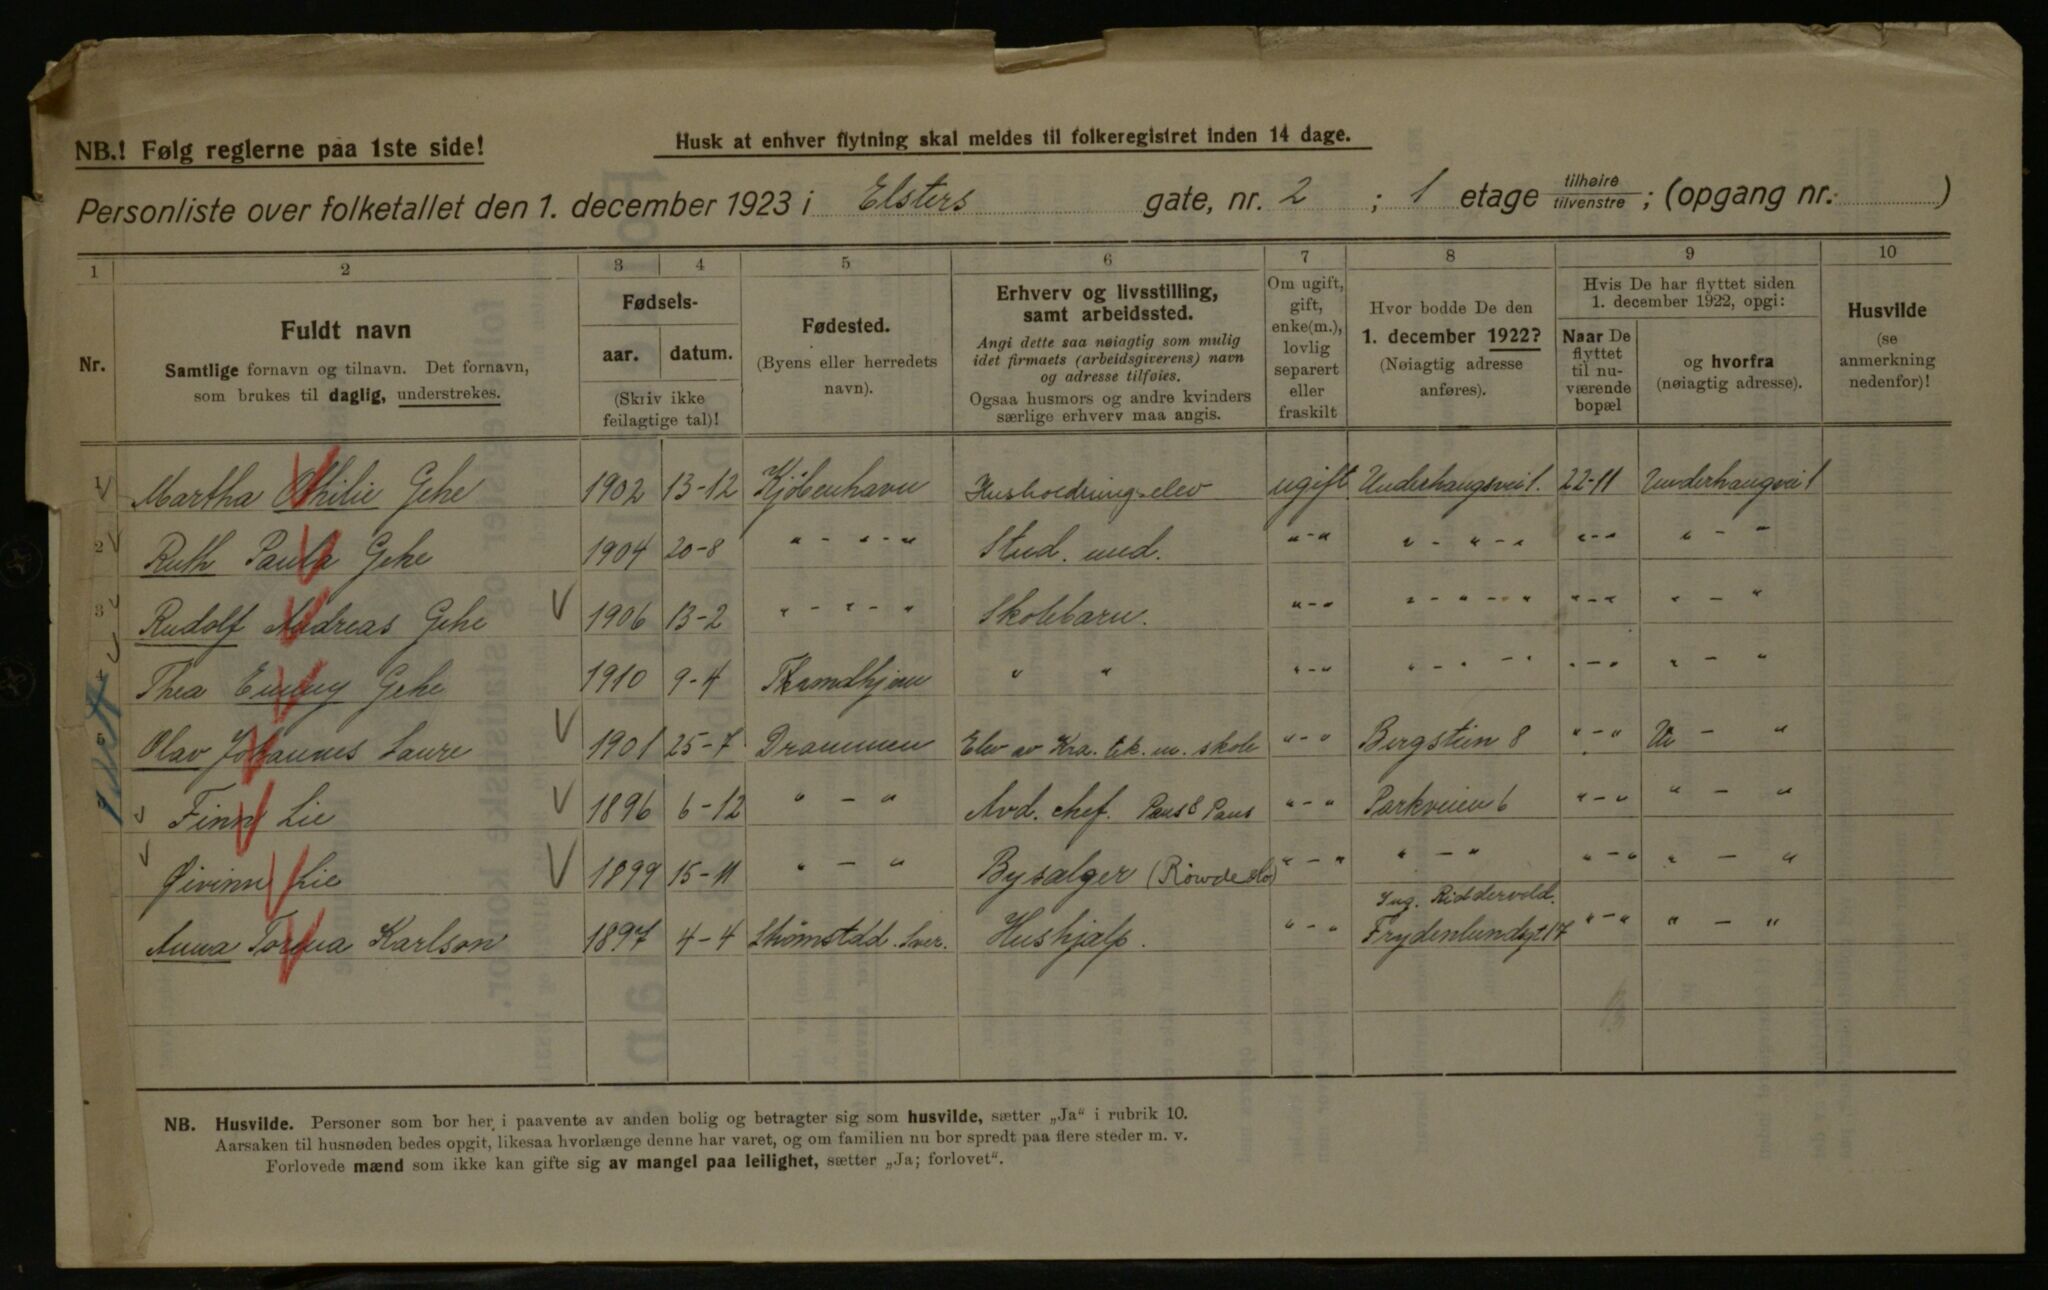 NB.! Følg reglerne paa 1ste side!
Husk at enhver flytning skal meldes til folkeregistret inden 14 dage.
Personliste over folketallet den 1. december 1923 i Elsters gate, nr. 2 ; 1 etage tilhøire tilvenstre ; (opgang nr. )
1 2 3 4 5 6 7 8 9 10
Nr.
Fuldt navn
Samtlige fornavn og tilnavn. Det fornavn,
som brukes til daglig, understrekes.
Fødsels-
aar. datum.
(Skriv ikke
feilagtige tal)!
Fødested.
(Byens eller herredets
navn).
Erhverv og livsstilling,
samt arbeidssted.
Angi dette saa nøiagtig som mulig
idet firmaets (arbeidsgiverens) navn
og adresse tilføies.
Ogsaa husmors og andre kvinders
særlige erhverv maa angis.
Om ugift,
gift,
enke(m.),
lovlig
separert
eller
fraskilt
Hvor bodde De den
1. december 1922?
(Nøiagtig adresse
anføres).
Hvis De har flyttet siden
1. december 1922, opgi:
Naar De
flyttet
til nu-
værende
bopæl
og hvorfra
(nøiagtig adresse).
Husvilde
(se
anmerkning
nedenfor)!
1 Martha Othilie Gehe 1902 13-12 Kjøbenhavn Husholdnings-elev ugift Underhaugsvei 1. 22-11 Underhaugvei 1
2 Ruth Paula Gehe 1904 20-8 " - " - " Stud. med. " - " " - " - " " - " " - "
3 Rudolf Andreas Gehe 1906 13-2 " - " - " Skolebarn. " - " " - " - " " - " " - "
4 Thea Emmy Gehe 1910 9-4 Trondhjem " " " - " " - " - " " - " " - "
5 Olav Johannes Laure 1901 25-7 Drammen Elev av Kra. tek. m. skole " - " Bergstien 8 " - " - "
Finn Lie 1896 6-12 " - " Avd. chef. Paus & Paus " - " Parkveien 6 " - " " - "
Øivinn Lie 1899 15-11 " - " Bysælger " - " " - " " - " " - "
Ing. Riddervold.
Anna Karlson 1897 4-4 Hushjælp. " - " Frydenlundgt 17 " - " " - "
NB. Husvilde. Personer som bor her i paavente av anden bolig og betragter sig som husvilde, sætter „Ja“ i rubrik 10.
Aarsaken til husnøden bedes opgit, likesaa hvorlænge denne har varet, og om familien nu bor spredt paa flere steder m. v.
Forlovede mænd som ikke kan gifte sig av mangel paa leilighet, sætter „Ja; forlovet“.